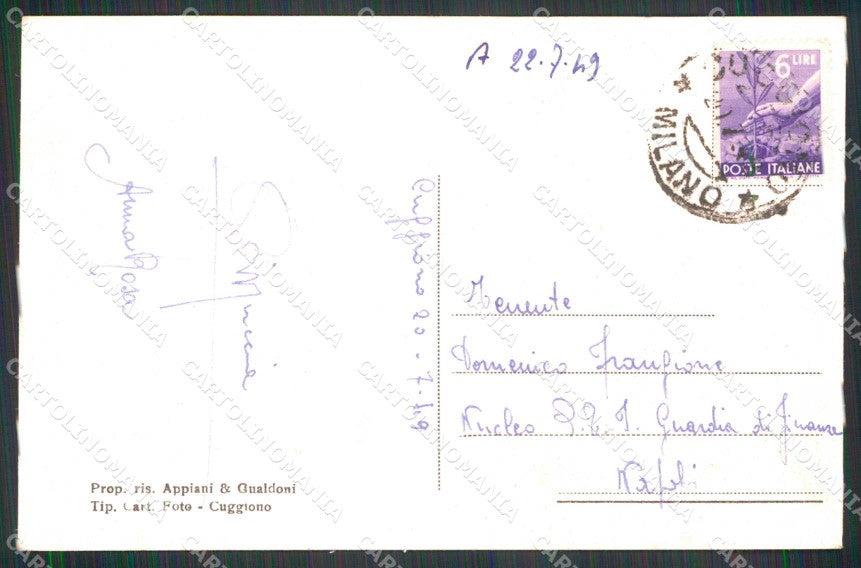 A 22.7.49
6 LIRE
POSTE ITALIANE
CUGGIONO
* MILANO *
AnnaRosa
Cuggiono 20-7-49
Tenente
Domenico Frangione
Nucleo P.T.I. Guardia di Finanza
Napoli
Prop. ris. Appiani & Gualdoni
Tip. Cart. Foto - Cuggiono
CARTOLINOMANIA